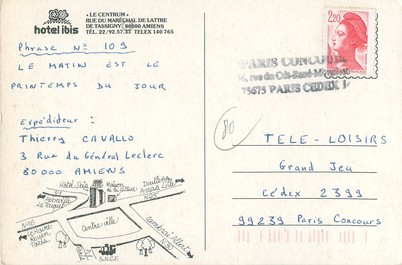 hotel ibis
« LE CENTRUM »
RUE DU MARÉCHAL DE LATTRE
DE TASSIGNY 80000 AMIENS
TÉL. 22/92.57.33 TELEX 140 765
Phrase N° 109
LE MATIN EST LE
PRINTEMPS DU JOUR
Expéditeur :
Thierry CAVALLO
3 Rue du Général Leclerc
80000 AMIENS
2,20
PARIS CONCOURS
75675 PARIS CEDEX 14
80
TELE-LOISIRS
Grand Jeu
Cédex 2399
99239 Paris Concours
Hôtel Ibis
Maison de la culture
Centre ville
S.N.C.F.